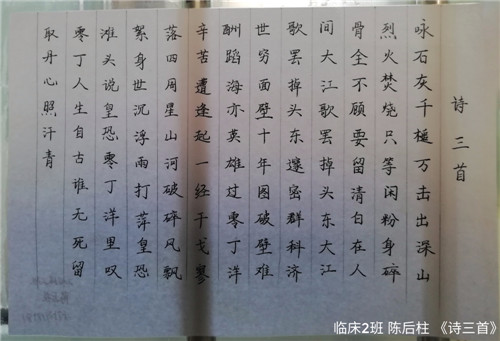 诗三首
咏石灰千槌万击出深山
烈火焚烧只等闲粉身碎
骨全不顾要留清白在人
间大江歌罢掉头东大江
歌罢掉头东邃密群科济
世穷面壁十年图破壁难
酬蹈海亦英雄过零丁洋
辛苦遭逢起一经干戈寥
落四周星山河破碎风飘
絮身世沉浮雨打萍皇恐
滩头说皇恐零丁洋里叹
零丁人生自古谁无死留
取丹心照汗青
临床2班 陈后柱 《诗三首》